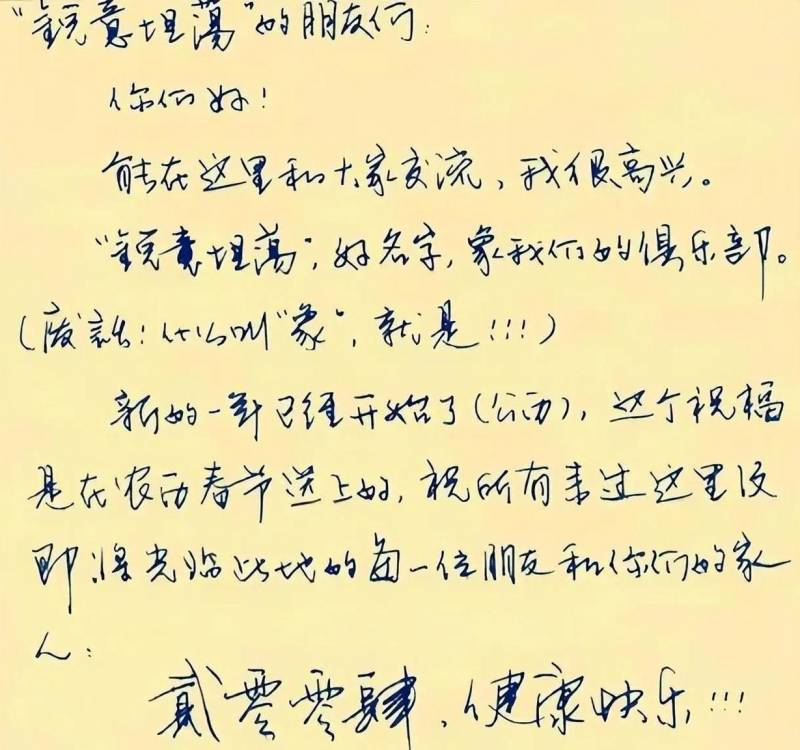 “锐意坦荡”的朋友们：
你们好！
能在这里和大家交流，我很高兴。
“锐意坦荡”，好名字，象我们的俱乐部。
（废话！什么叫“象”，就是！！！）
新的一年已经开始了（公历），这个祝福
是在农历春节送上的，祝所有来过这里及
即将光临此地的每一位朋友和你们的家
人：
贰零零肆，健康快乐！！！